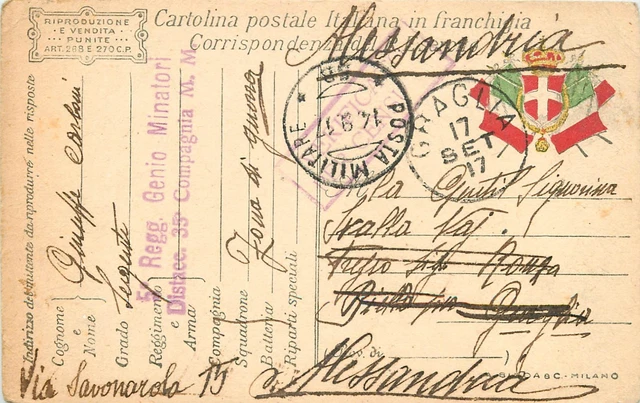 RIPRODUZIONE
E VENDITA
PUNITE
ART. 288 E 270 C.P.
Cartolina postale Italiana in franchigia
Corrispondenza del
Alessandria
POSTA MILITARE
14.9.17
GRAGLIA
17
SET
17
Indirizzo del mittente da riprodurre nelle risposte
Cognome
e
Nome
Giuseppe
Grado
Sergente
Reggimento
e
Arma
5° Regg. Genio Minatori
Distacc. 35ª Compagnia M. M.
Compagnia
Squadrone
Batteria
Riparti speciali
Zona di guerra
Alla Gentil Signorina
Scalla
Graglia
di
)
Alessandria
Via Savonarola 15
MILANO